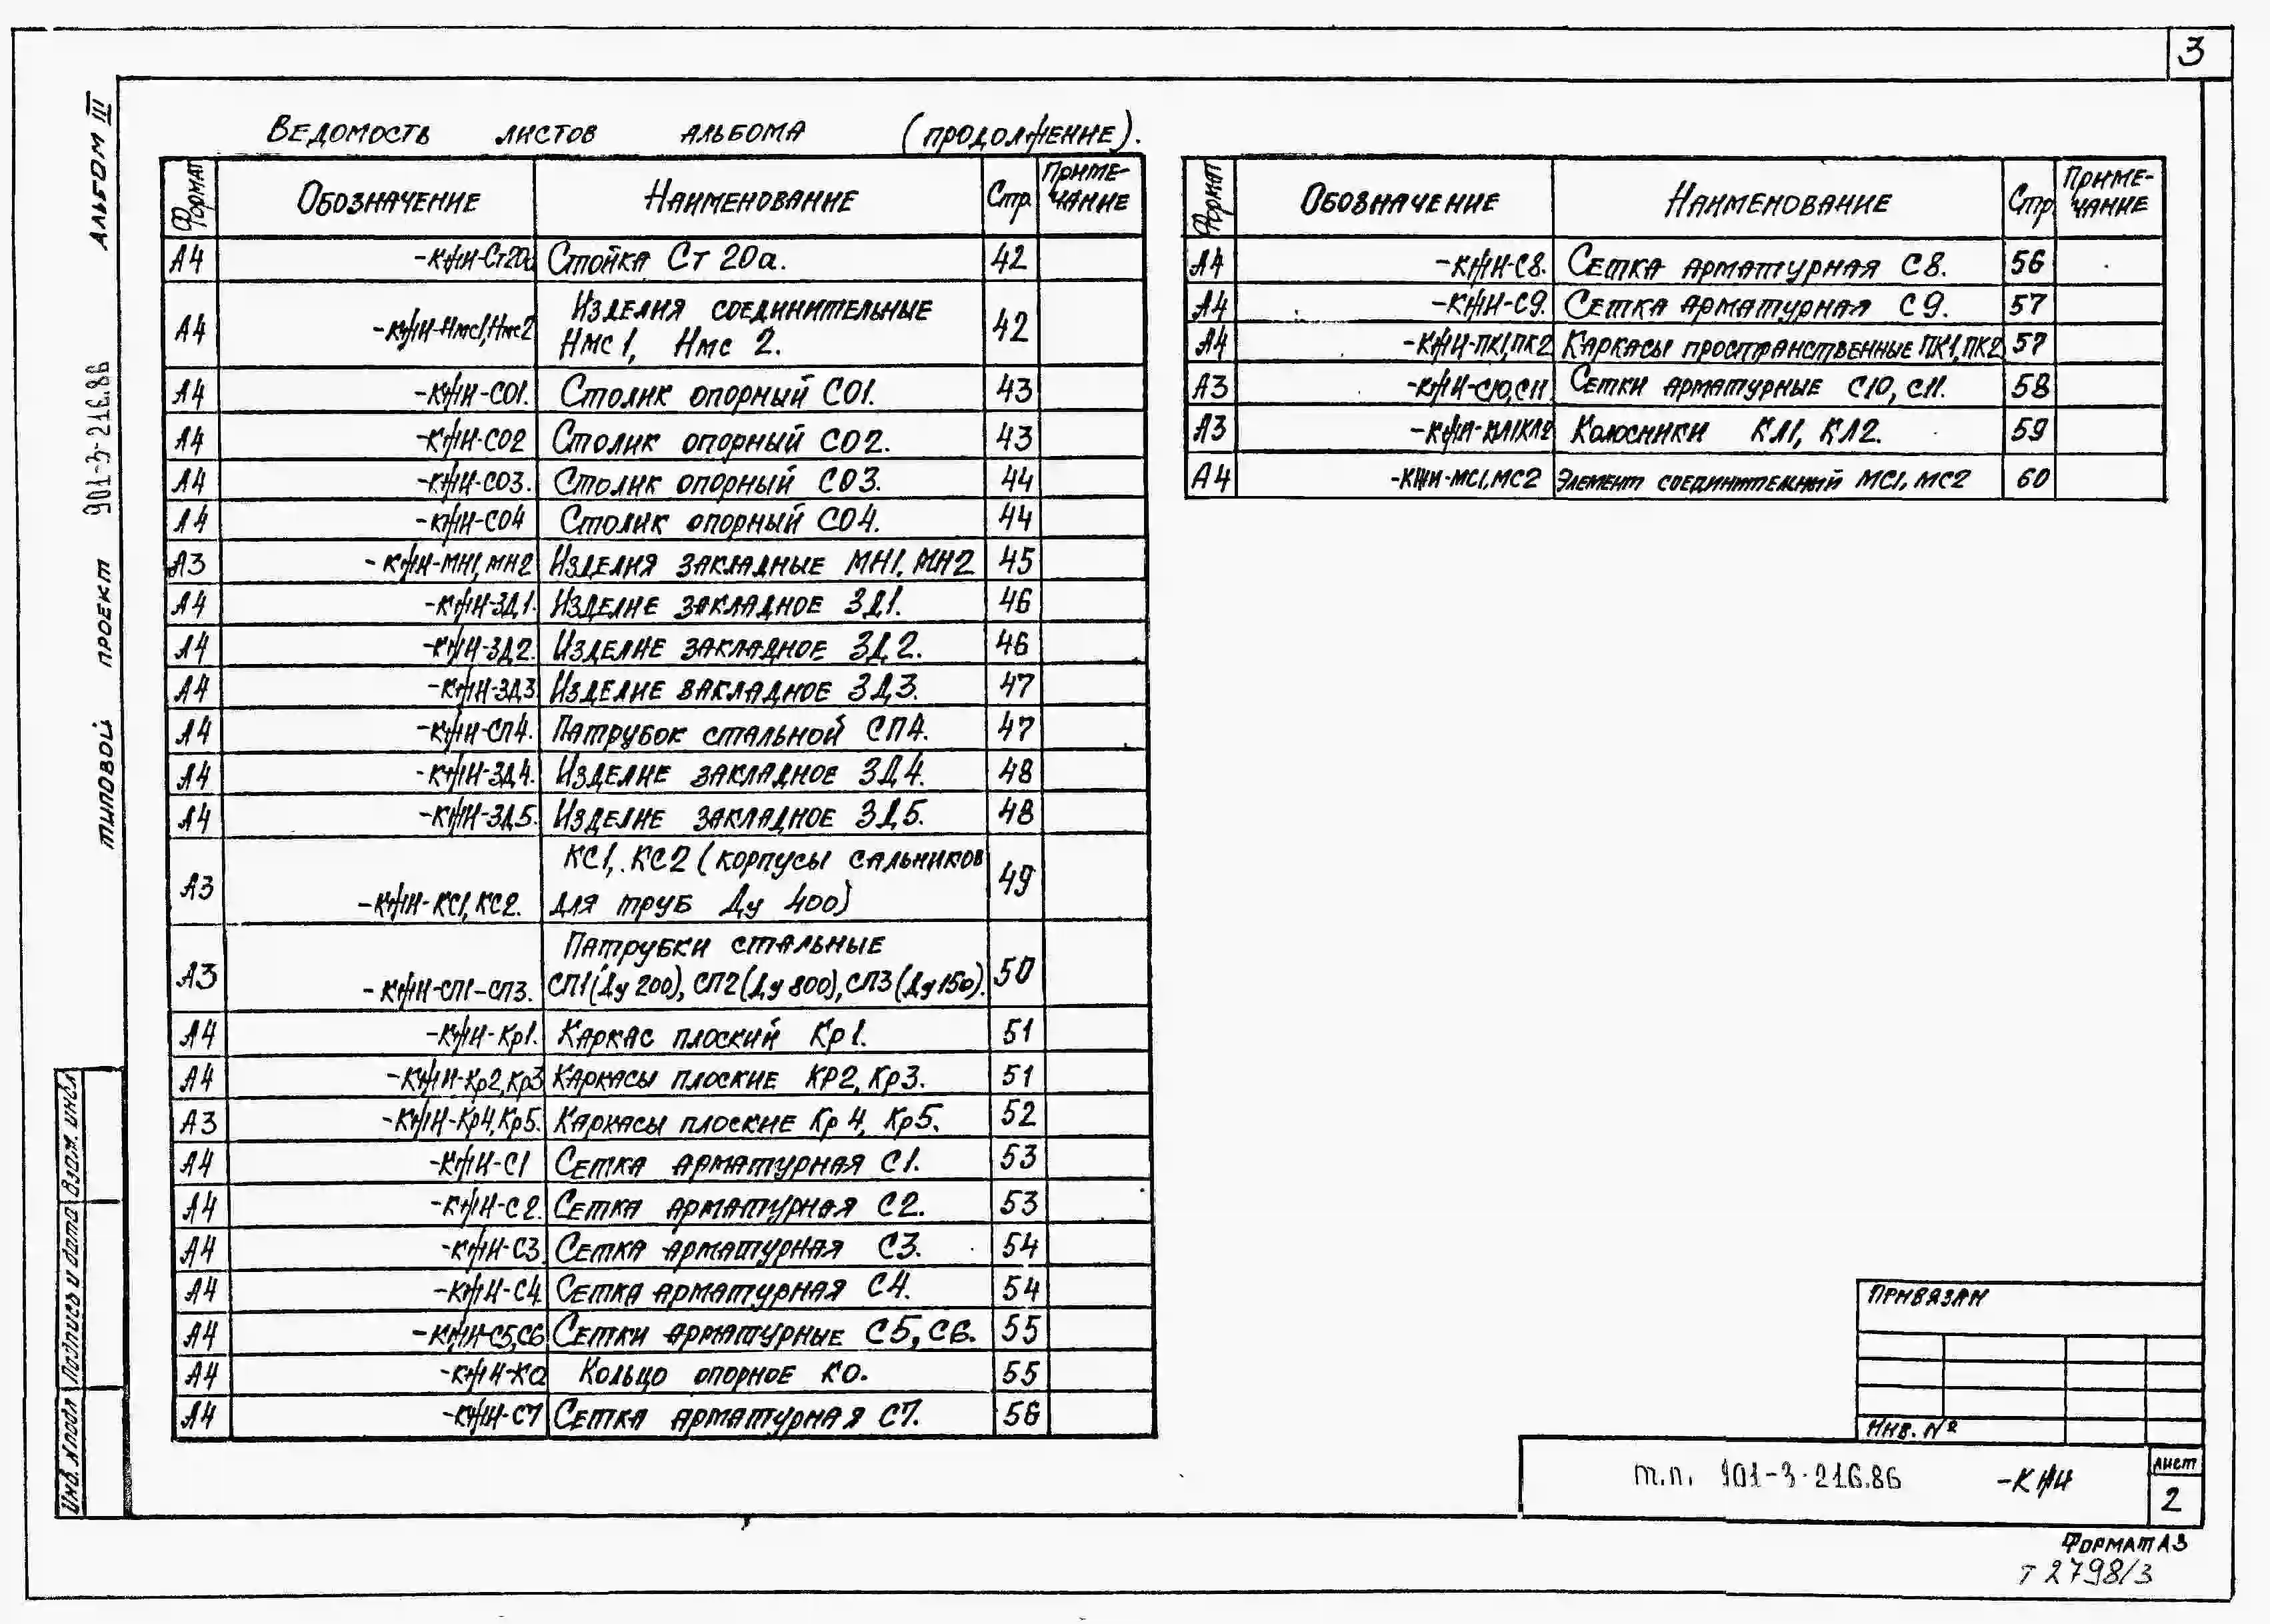 3
Альбом III
Типовой проект 901-3-216.86
Ведомость листов альбома (продолжение).
Формат Обозначение Наименование Стр. Приме-чание
А4 -КЖИ-Ст20а Стойка Ст 20а. 42
А4 -КЖИ-Нмс1,Нмс2 Изделия соединительные
Нмс 1, Нмс 2. 42
А4 -КЖИ-СО1. Столик опорный СО1. 43
А4 -КЖИ-СО2 Столик опорный СО2. 43
А4 -КЖИ-СО3. Столик опорный СО3. 44
А4 -КЖИ-СО4 Столик опорный СО4. 44
А3 -КЖИ-МН1, МН2 Изделия закладные МН1, МН2 45
А4 -КЖИ-ЗД1. Изделие закладное ЗД1. 46
А4 -КЖИ-ЗД2. Изделие закладное ЗД2. 46
А4 -КЖИ-ЗД3 Изделие закладное ЗД3. 47
А4 -КЖИ-СП4. Патрубок стальной СП4. 47
А4 -КЖИ-ЗД4. Изделие закладное ЗД4. 48
А4 -КЖИ-ЗД5. Изделие закладное ЗД5. 48
А3 -КЖИ-КС1, КС2. КС1, КС2 (корпусы сальников
для труб Ду 400) 49
А3 -КЖИ-СП1-СП3. Патрубки стальные
СП1(Ду 200), СП2(Ду 800), СП3(Ду150). 50
А4 -КЖИ-Кр1. Каркас плоский Кр1. 51
А4 -КЖИ-Кр2,Кр3 Каркасы плоские КР2, Кр3. 51
А3 -КЖИ-Кр4,Кр5. Каркасы плоские Кр 4, Кр5. 52
А4 -КЖИ-С1 Сетка арматурная С1. 53
А4 -КЖИ-С2. Сетка арматурная С2. 53
А4 -КЖИ-С3 Сетка арматурная С3. 54
А4 -КЖИ-С4 Сетка арматурная С4. 54
А4 -КЖИ-С5,С6 Сетки арматурные С5, С6. 55
А4 -КЖИ-КО Кольцо опорное КО. 55
А4 -КЖИ-С7 Сетка арматурная С7. 56
Формат Обозначение Наименование Стр Приме-чание
А4 -КЖИ-С8. Сетка арматурная С8. 56
А4 -КЖИ-С9. Сетка арматурная С9. 57
А4 -КЖИ-ПК1,ПК2 Каркасы пространственные ПК1,ПК2 57
А3 -КЖИ-С10,С11 Сетки арматурные С10, С11. 58
А3 -КЖИ-КЛ1КЛ2 Колосники КЛ1, КЛ2. 59
А4 -КЖИ-МС1,МС2 Элемент соединительный МС1, МС2 60
Привязан
Инв. №
т.п. 901-3-216.86 -КЖИ
лист
2
Формат А3
т 2798/3
Инв. № подл Подпись и дата Взам. инв.